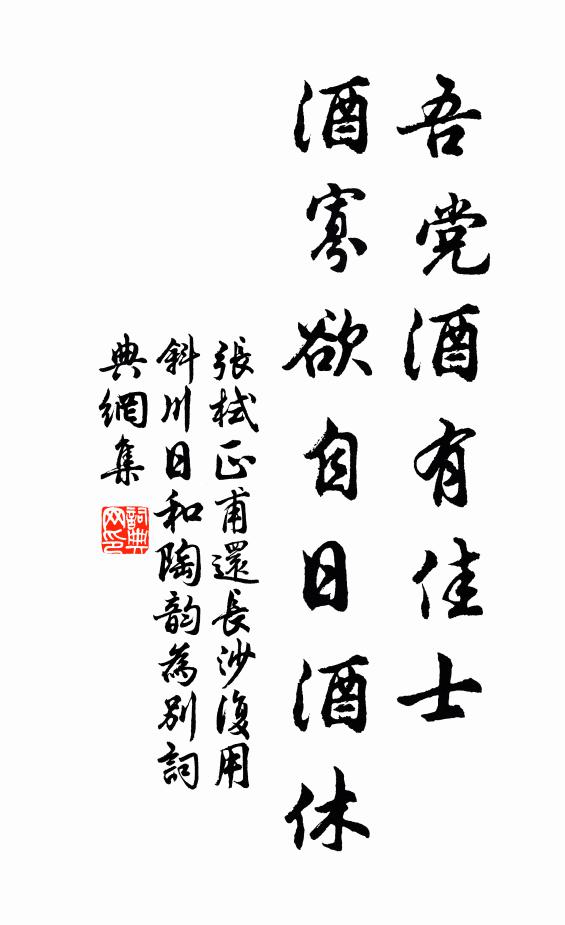 吾党酒有佳士
酒寡欲自日酒休
張栻正甫還長沙復用
斜川日和陶韵為別詞
典網集
詞典網印